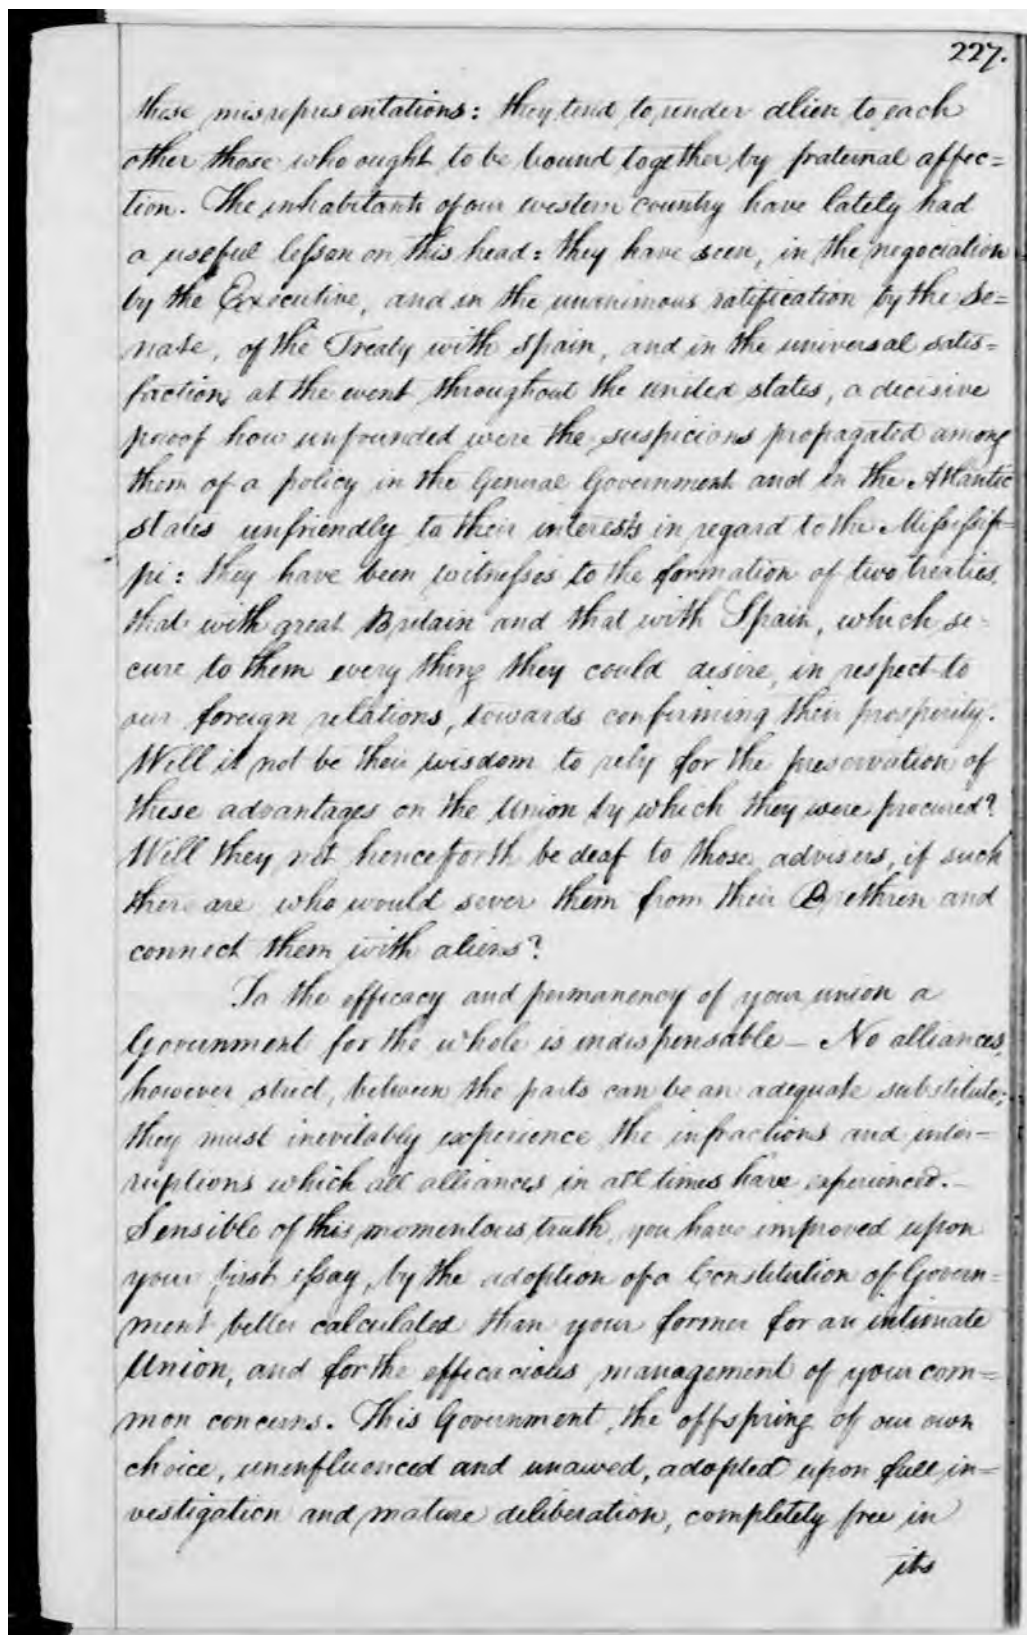 227.
these misrepresentations: they tend to render alien to each
other those who ought to be bound together by fraternal affec=
tion. The inhabitants of our western country have lately had
a useful leſson on this head: they have seen, in the negociation
by the Executive, and in the unanimous ratification by the Se=
nate, of the Treaty with Spain, and in the universal satis=
faction at the event throughout the united states, a decisive
proof how unfounded were the suspicions propagated among
them of a policy in the General Government and in the Atlantic
states unfriendly to their interests in regard to the Miſsiſsip=
pi: they have been witneſses to the formation of two treaties,
that with great Britain and that with Spain, which se=
cure to them every thing they could desire, in respect to
our foreign relations, towards confirming their prosperity.
Will it not be their wisdom to rely for the preservation of
these advantages on the Union by which they were procured?
Will they not henceforth be deaf to those advisers, if such
there are who would sever them from their Brethren and
connect them with aliens?
To the efficacy and permanency of your union a
Government for the whole is indispensable — No alliances,
however strict, between the parts can be an adequate substitute;
they must inevitably experience the infractions and inter=
ruptions which all alliances in all times have experienced.—
Sensible of this momentous truth, you have improved upon
your first eſsay, by the adoption of a Constitution of Govern=
ment better calculated than your former for an intimate
Union, and for the efficacious management of your com=
mon concerns. This Government, the offspring of our own
choice, uninfluenced and unawed, adopted upon full in=
vestigation and mature deliberation, completely free in
its